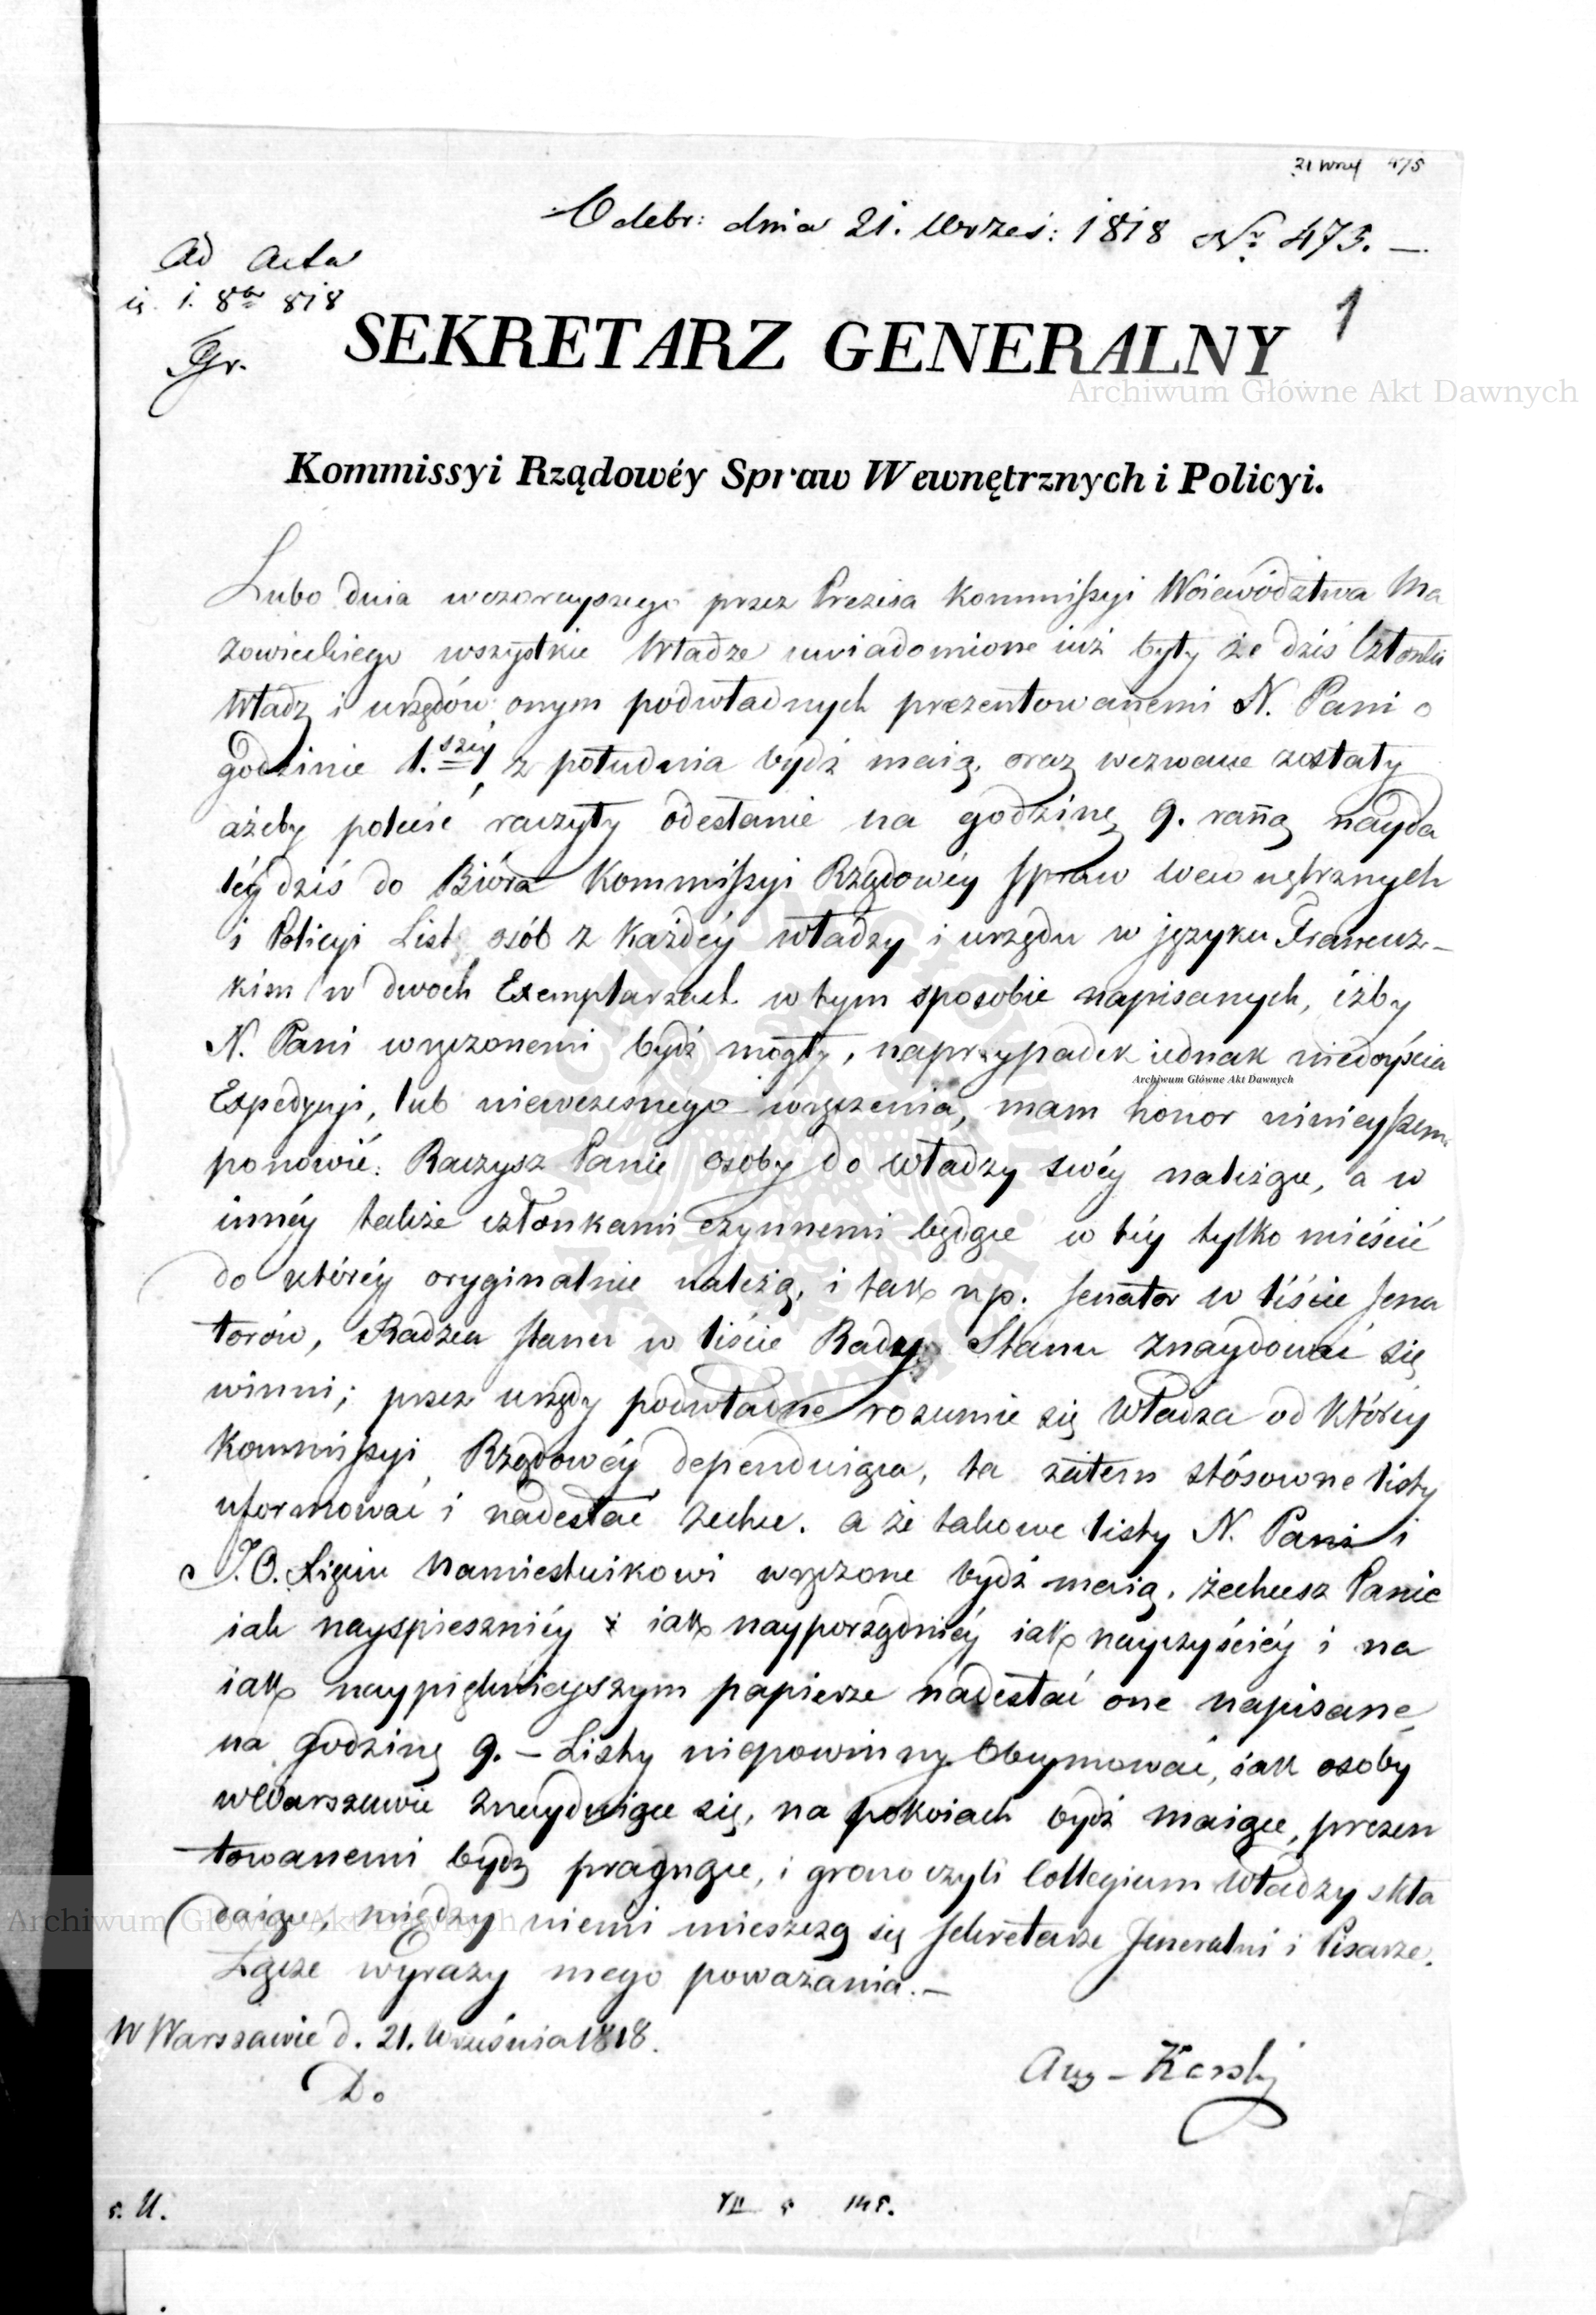 21 Wrześ 475
Odebr: dnia 21. Wrześ: 1818 Nr. 475. —
Ad Acta
1. 8br 818
Gr.
1
SEKRETARZ GENERALNY
Archiwum Główne Akt Dawnych
Kommissyi Rządowéy Spraw Wewnętrznych i Policyi.
Lubo dnia wczorayszego przez Prezesa Kommissyi Woiewództwa Ma
zowieckiego wszystkie Władze uwiadomione iuż były że dziś Członki
Władz i urzędów onym podwładnych prezentowanemi N. Pani o
godzinie 1.széy z południa bydź maią, oraz wezwane zostały
ażeby polecić raczyły odesłanie na godzinę 9. ranną nayda
léy dziś do Bióra Kommissyi Rządowéy Spraw Wewnętrznych
i Policyi List osób z każdéy władzy i urzędu w języku Francuz-
kim w dwoch Exemplarzach w tym sposobie napisanych, iżby
N. Pani wręczonemi bydź mogły, naprzypadek iednak niedoyścia
Archiwum Główne Akt Dawnych
Expedycyi, lub niewczesnego wręczenia, mam honor ninieyszem
ponowić: Raczysz Panie osoby do władzy swéy należące, a w
innéy także członkami czynnemi będące w téy tylko mieścić
do któréy oryginalnie należą, i tak np. Senator w liście Sena
torów, Radzca Stanu w liście Rady Stanu znaydować się
winni; przez urzędy podwładne rozumie się Władza od któréy
Kommissyi Rządowéy dependuiąca, ta zatem stósowne listy
uformować i nadesłać zechce. a że takowe listy N. Pani i
J.O. Xięciu Namiestnikowi wręczone bydź maią, zechcesz Panie
iak nayspieszniéy i iak nayporządniéy iak nayczyściéy i na
iak naypięknieyszym papierze nadesłać one napisane
na godzinę 9. — Listy niepowinny Obeymować, iak osoby
w Warszawie znayduiące się, na pokoiach bydź maiące, prezen
towanemi bydź pragnące, i grono czyli Collegium Władzy skła
daiące, między niemi mieszczą się Sekretarze Jeneralni i Pisarze.
Archiwum Główne Akt Dawnych
Łączę wyrazy mego poważania. —
W Warszawie d. 21. Września 1818.
Do
Aug - Karski
s. U.
VII 5 148.